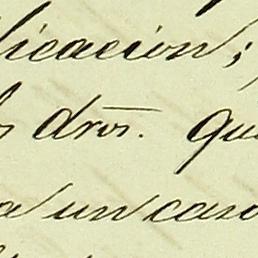 licacion;
dros. que
a un caso